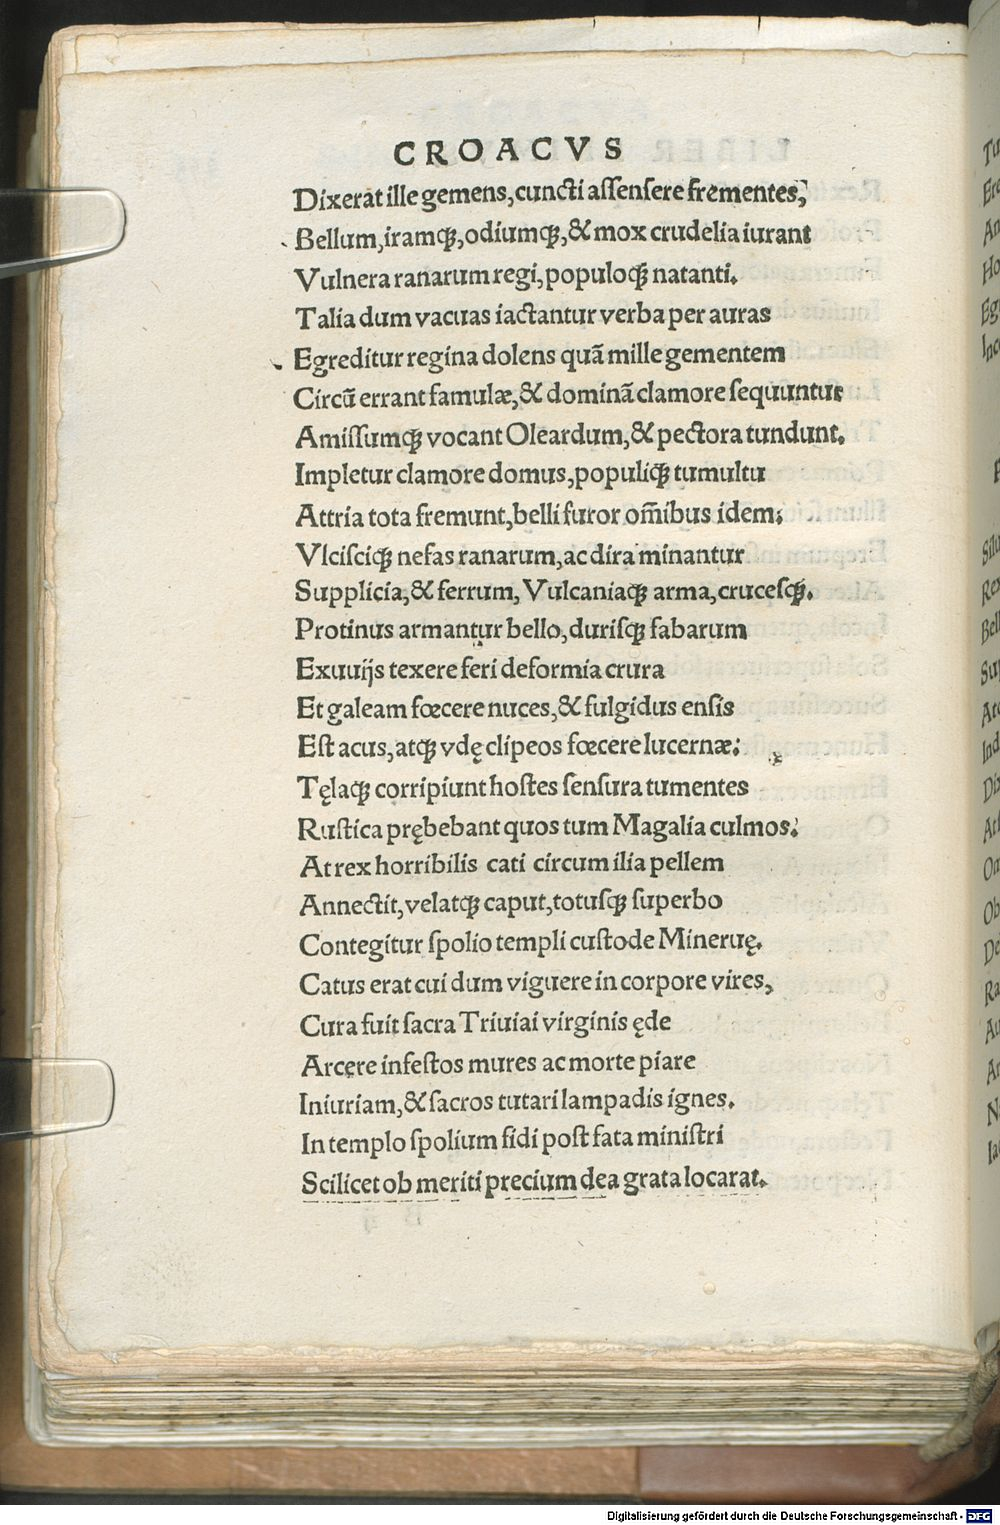 CROACVS
Dixerat ille gemens, cuncti assensere frementes,
Bellum, iramqꝫ, odiumqꝫ, & mox crudelia iurant
Vulnera ranarum regi, populoqꝫ natanti.
Talia dum vacuas iactantur verba per auras
Egreditur regina dolens quã mille gementem
Circũ errant famulæ, & dominã clamore sequuntur
Amissumqꝫ vocant Oleardum, & pectora tundunt.
Impletur clamore domus, populiqꝫ tumultu
Attria tota fremunt, belli furor om̃ibus idem;
Vlcisciqꝫ nefas ranarum, ac dira minantur
Supplicia, & ferrum, Vulcaniaqꝫ arma, crucesqꝫ.
Protinus armantur bello, durisqꝫ fabarum
Exuuijs texere feri deformia crura
Et galeam fœcere nuces, & fulgidus ensis
Est acus, atqꝫ vdę clipeos fœcere lucernæ:
Tęlaqꝫ corripiunt hostes sensura tumentes
Rustica prębebant quos tum Magalia culmos.
At rex horribilis cati circum ilia pellem
Annectit, velatqꝫ caput, totusqꝫ superbo
Contegitur spolio templi custode Mineruę.
Catus erat cui dum viguere in corpore vires,
Cura fuit sacra Triuiai virginis ęde
Arcęre infestos mures ac morte piare
Iniuriam, & sacros tutari lampadis ignes.
In templo spolium fidi post fata ministri
Scilicet ob meriti precium dea grata locarat.
Digitalisierung gefördert durch die Deutsche Forschungsgemeinschaft - DFG